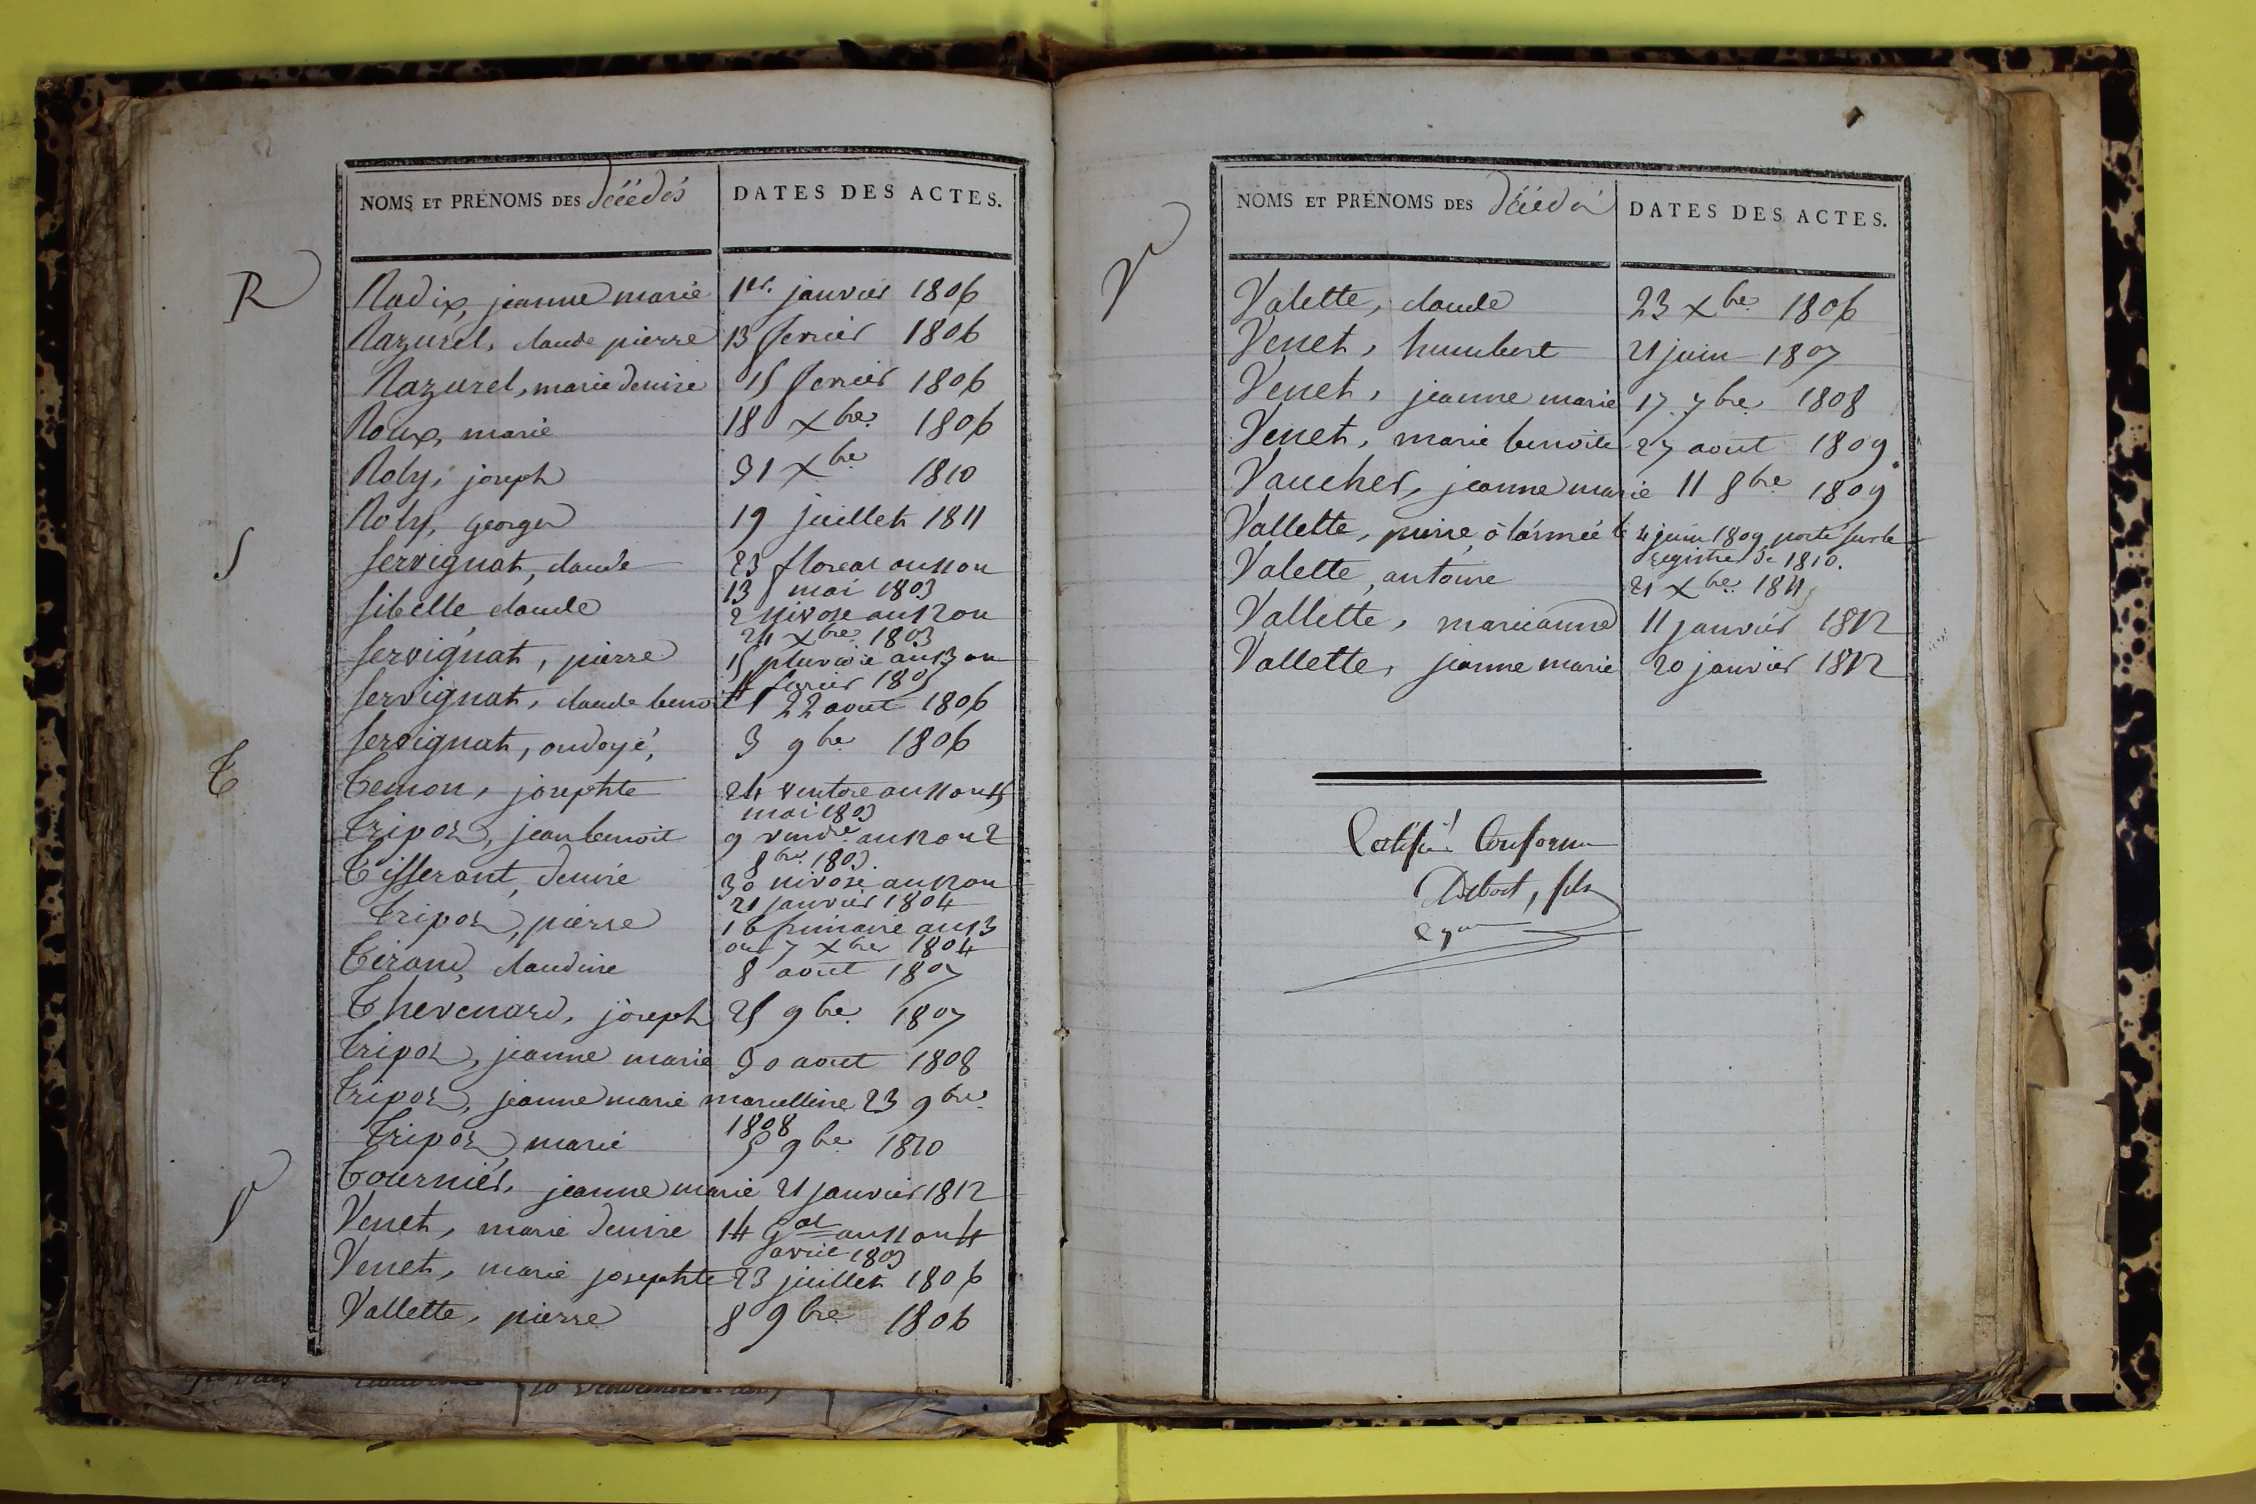 NOMS ET PRÉNOMS DES décédés DATES DES ACTES.
R
Radix, jeanne marie 1er. janvier 1806
Razurel, claude pierre 13 fevrier 1806
Razurel, marie denise 15 fevrier 1806
Roux, marie 18 Xbre. 1806
Roly, joseph 31 Xbre 1810
Roly, George 19 juillet 1811
S
Servignat, claude 23 floreal an 11 ou
13 mai 1803
Sibelle claude 2 nivose an 12 ou
24 Xbre 1803
Servignat, pierre 15 pluviose an 13 ou
4 fevrier 1805
Servignat, claude benoit 22 aout 1806
Servignat, ondoyé, 3 9bre 1806
T
Temon, josephte 24 ventose an 11 ou 15
mai 1803
Tripoz, jean benoit 9 vendre an 12 ou 2
8bre 1803.
Tisserant, denise 30 nivose an 12 ou
21 janvier 1804
Tripoz, pierre 16 frimaire an 13
ou 7 Xbre 1804
Tirand, claudine 8 aout 1807
Thevenard, joseph 25 9bre. 1807
Tripoz, jeanne marie 30 aout 1808
Tripoz, jeanne marie marcelline 23 9bre
1808
Tripoz, marie 5 9bre 1810
Tournier, jeanne marie 21 janvier 1812
V
Venet, marie denise 14 Gal an 11 ou 4
avril 1803
Venet, marie josephte 23 juillet 1806
Vallette, pierre 8 9bre 1806
NOMS ET PRÉNOMS DES décédés DATES DES ACTES.
V
Valette, claude 23 Xbre. 1806
Venet, humbert 21 juin 1807
Venet, jeanne marie 17 7bre 1808
Venet, marie benoite 27 aout 1809.
Vaucher, jeanne marie 11 8bre 1809
Vallette, pierre, à l'armée le 4 juin 1809 porté sur le
registre de 1810.
Valette, antoine 21 Xbre. 1811
Vallette, marieanne 11 janvier 1812
Vallette, jeanne marie 20 janvier 1812
Certifié Conforme
fils